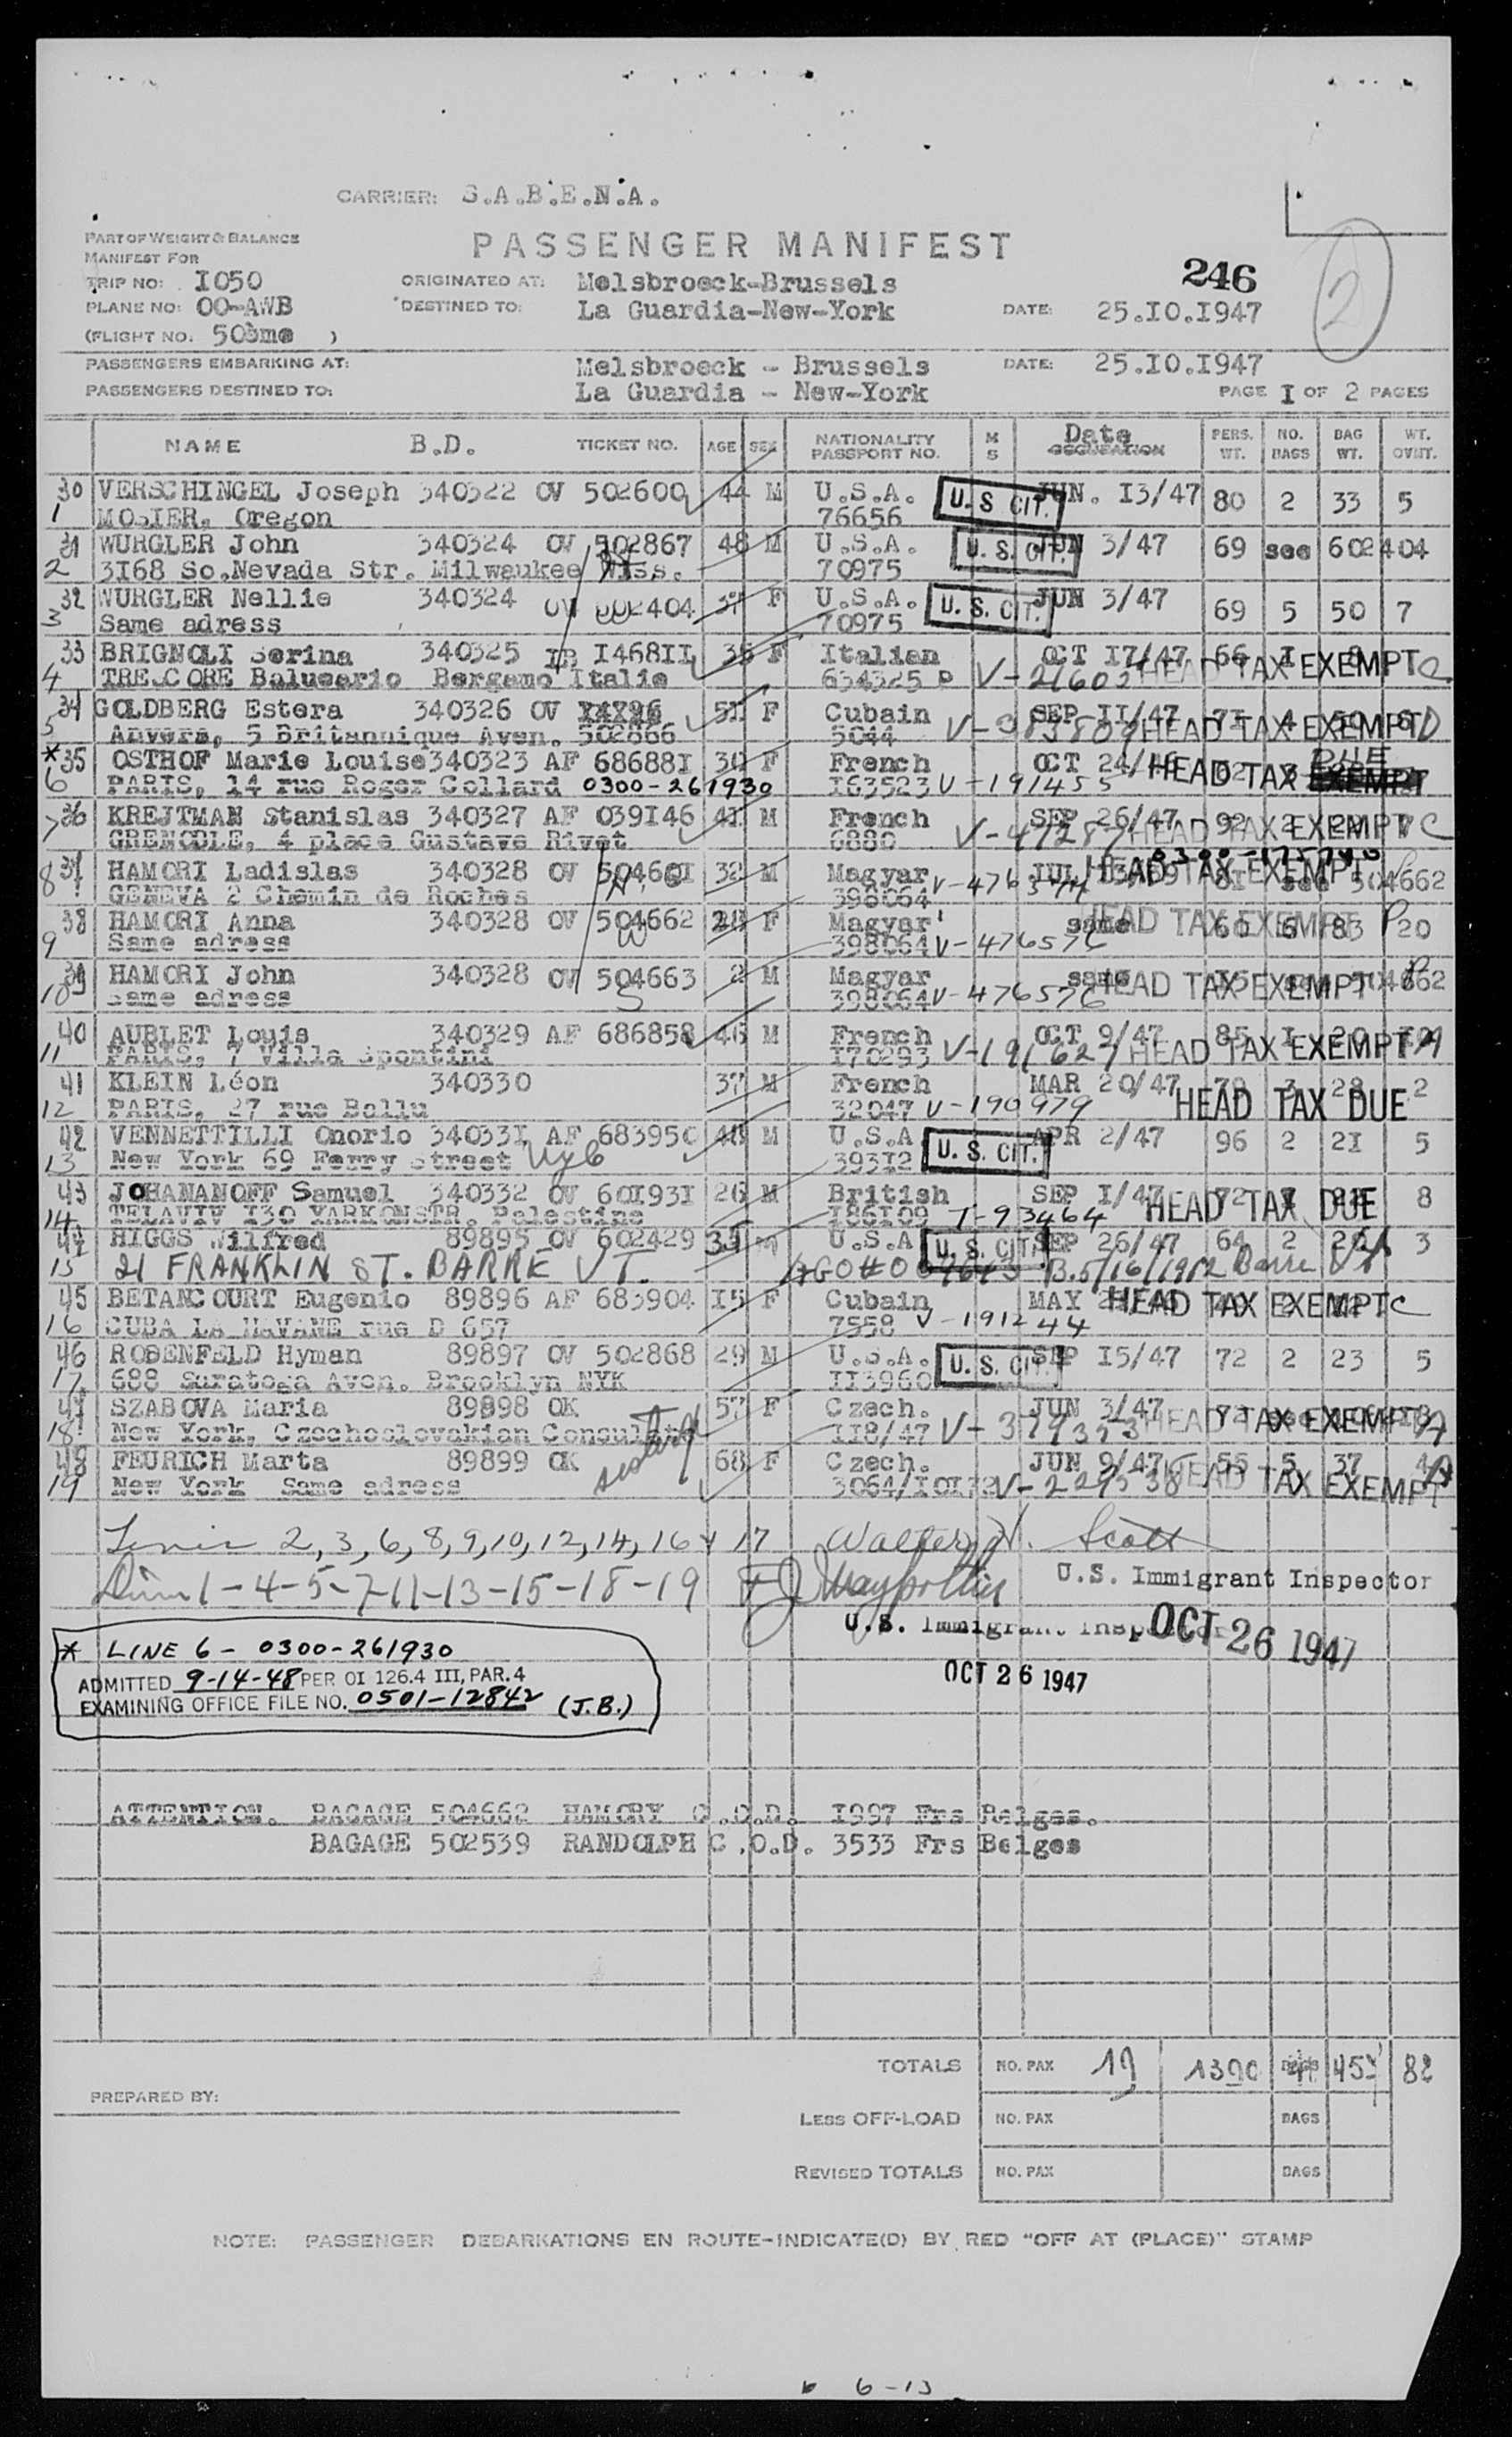 CARRIER: S.A.B.E.N.A.
PART OF WEIGHT & BALANCE
MANIFEST FOR
PASSENGER MANIFEST
246
2
TRIP NO: I050
ORIGINATED AT: Melsbroeck-Brussels
PLANE NO: OO-AWB
DESTINED TO: La Guardia-New-York
DATE: 25.I0.I947
(FLIGHT NO. 50ème )
PASSENGERS EMBARKING AT: Melsbroeck - Brussels DATE: 25.I0.I947
PASSENGERS DESTINED TO: La Guardia - New-York PAGE I OF 2 PAGES
NAME B.D. TICKET NO. AGE SEX NATIONALITY PASSPORT NO. M S Date OCCUPATION PERS. WT. NO. BAGS BAG WT. WT. OVWT.
30 VERSCHINGEL Joseph 340322 OV 502600 44 M U.S.A. U.S CIT. JUN. I3/47 80 2 33 5
1 MOSIER, Oregon 76656
31 WURGLER John 340324 OV 502867 48 M U.S.A. U.S. CIT. JUN 3/47 69 see 602404
2 3I68 So.Nevada Str. Milwaukee Wiss. 70975
32 WURGLER Nellie 340324 OV 602404 37 F U.S.A. U.S. CIT. JUN 3/47 69 5 50 7
3 Same adress 70975
33 BRIGNOLI Serina 340325 IB I468II 35 F Italien OCT I7/47 66 I
4 TRESCORE Balueario Bergamo Italie 634325 P V-21603 HEAD TAX EXEMPT C
34 GOLDBERG Estera 340326 OV F Cubain SEP II/47
5 Anvers, 5 Britannique Aven. 502866 5044 HEAD TAX EXEMPT D
*35 OSTHOF Marie Louise 340323 AF 68688I 30 F French OCT 24/46 DUE
6 PARIS, 14 rue Roger Collard 0300-261930 I63523 V-191455 HEAD TAX EXEMPT
36 KREJTMAN Stanislas 340327 AF 039I46 41 M French SEP 26/47 92 2
7 GRENOBLE, 4 place Gustave Rivet 6880 HEAD TAX EXEMPT C
37 HAMORI Ladislas 340328 OV 50466I 32 M Magyar HEAD TAX EXEMPT 504662
8 GENEVA 2 Chemin de Roches 398064
38 HAMORI Anna 340328 OV 504662 28 F Magyar same HEAD TAX EXEMPT 60 6 83 20
9 Same adress 398064 V-476576
39 HAMORI John 340328 OV 504663 2 M Magyar same HEAD TAX EXEMPT 504662
10 Same adress 398064 V-476576
40 AUBLET Louis 340329 AF 686858 46 M French OCT 9/47 85 I 20
11 PARIS, 7 Villa Spontini I70293 HEAD TAX EXEMPT A
41 KLEIN Léon 340330 37 M French MAR 20/47 78 3 28 2
12 PARIS, 27 rue Ballu 32047 V-190979 HEAD TAX DUE
42 VENNETTILLI Onorio 34033I AF 683950 48 M U.S.A U.S. CIT. APR 2/47 96 2 2I 5
13 New York 69 Ferry Street 393I2
43 JOHANANOFF Samuel 340332 OV 60I93I 26 M British SEP I/47 72 HEAD TAX DUE 8
14 TELAVIV I30 YARKONSTR. Palestine I86I09 T-93464
44 HIGGS Wilfred 89895 OV 602429 35 M U.S.A U.S. CIT. SEP 26/47 64 2 3
15 21 FRANKLIN ST. BARRE VT. B.5/16/1912 Barre Vt
45 BETANCOURT Eugenio 89896 AF 683904 I5 F Cubain MAY HEAD TAX EXEMPT C
16 CUBA LA HAVANE rue D 657 7558 V-191244
46 ROSENFELD Hyman 89897 OV 502868 29 M U.S.A. U.S. CIT. SEP I5/47 72 2 23 5
17 688 Saratoga Aven. Brooklyn NYK II3960
47 SZABOVA Maria 89898 OK 57 F Czech. JUN 3/47 HEAD TAX EXEMPT A
18 New York, Czechoslovakian Consulate II8/47 V-379353
48 FEURICH Marta 89899 OK 68 F Czech. JUN 9/47 55 5 37
19 New York Same adress HEAD TAX EXEMPT
2,3,6,8,9,10,12,14,16 & 17 Walter N. Scott
1-4-5-7-11-13-15-18-19 U.S. Immigrant Inspector
U.S. Immigrant Inspector OCT 26 1947
* LINE 6 - 0300-261930
ADMITTED 9-14-48 PER OI 126.4 III, PAR. 4
EXAMINING OFFICE FILE NO. 0501-12842 (J.B.)
OCT 26 1947
ATTENTION. BAGAGE 504662 HAMORY C.O.D. I997 Frs Belges.
BAGAGE 502539 RANDOLPH C.O.D. 3533 Frs Belges
TOTALS NO. PAX 19 1390 BAGS 457 82
PREPARED BY:
LESS OFF-LOAD NO. PAX BAGS
REVISED TOTALS NO. PAX BAGS
NOTE: PASSENGER DEBARKATIONS EN ROUTE-INDICATE(D) BY RED "OFF AT (PLACE)" STAMP
6-13